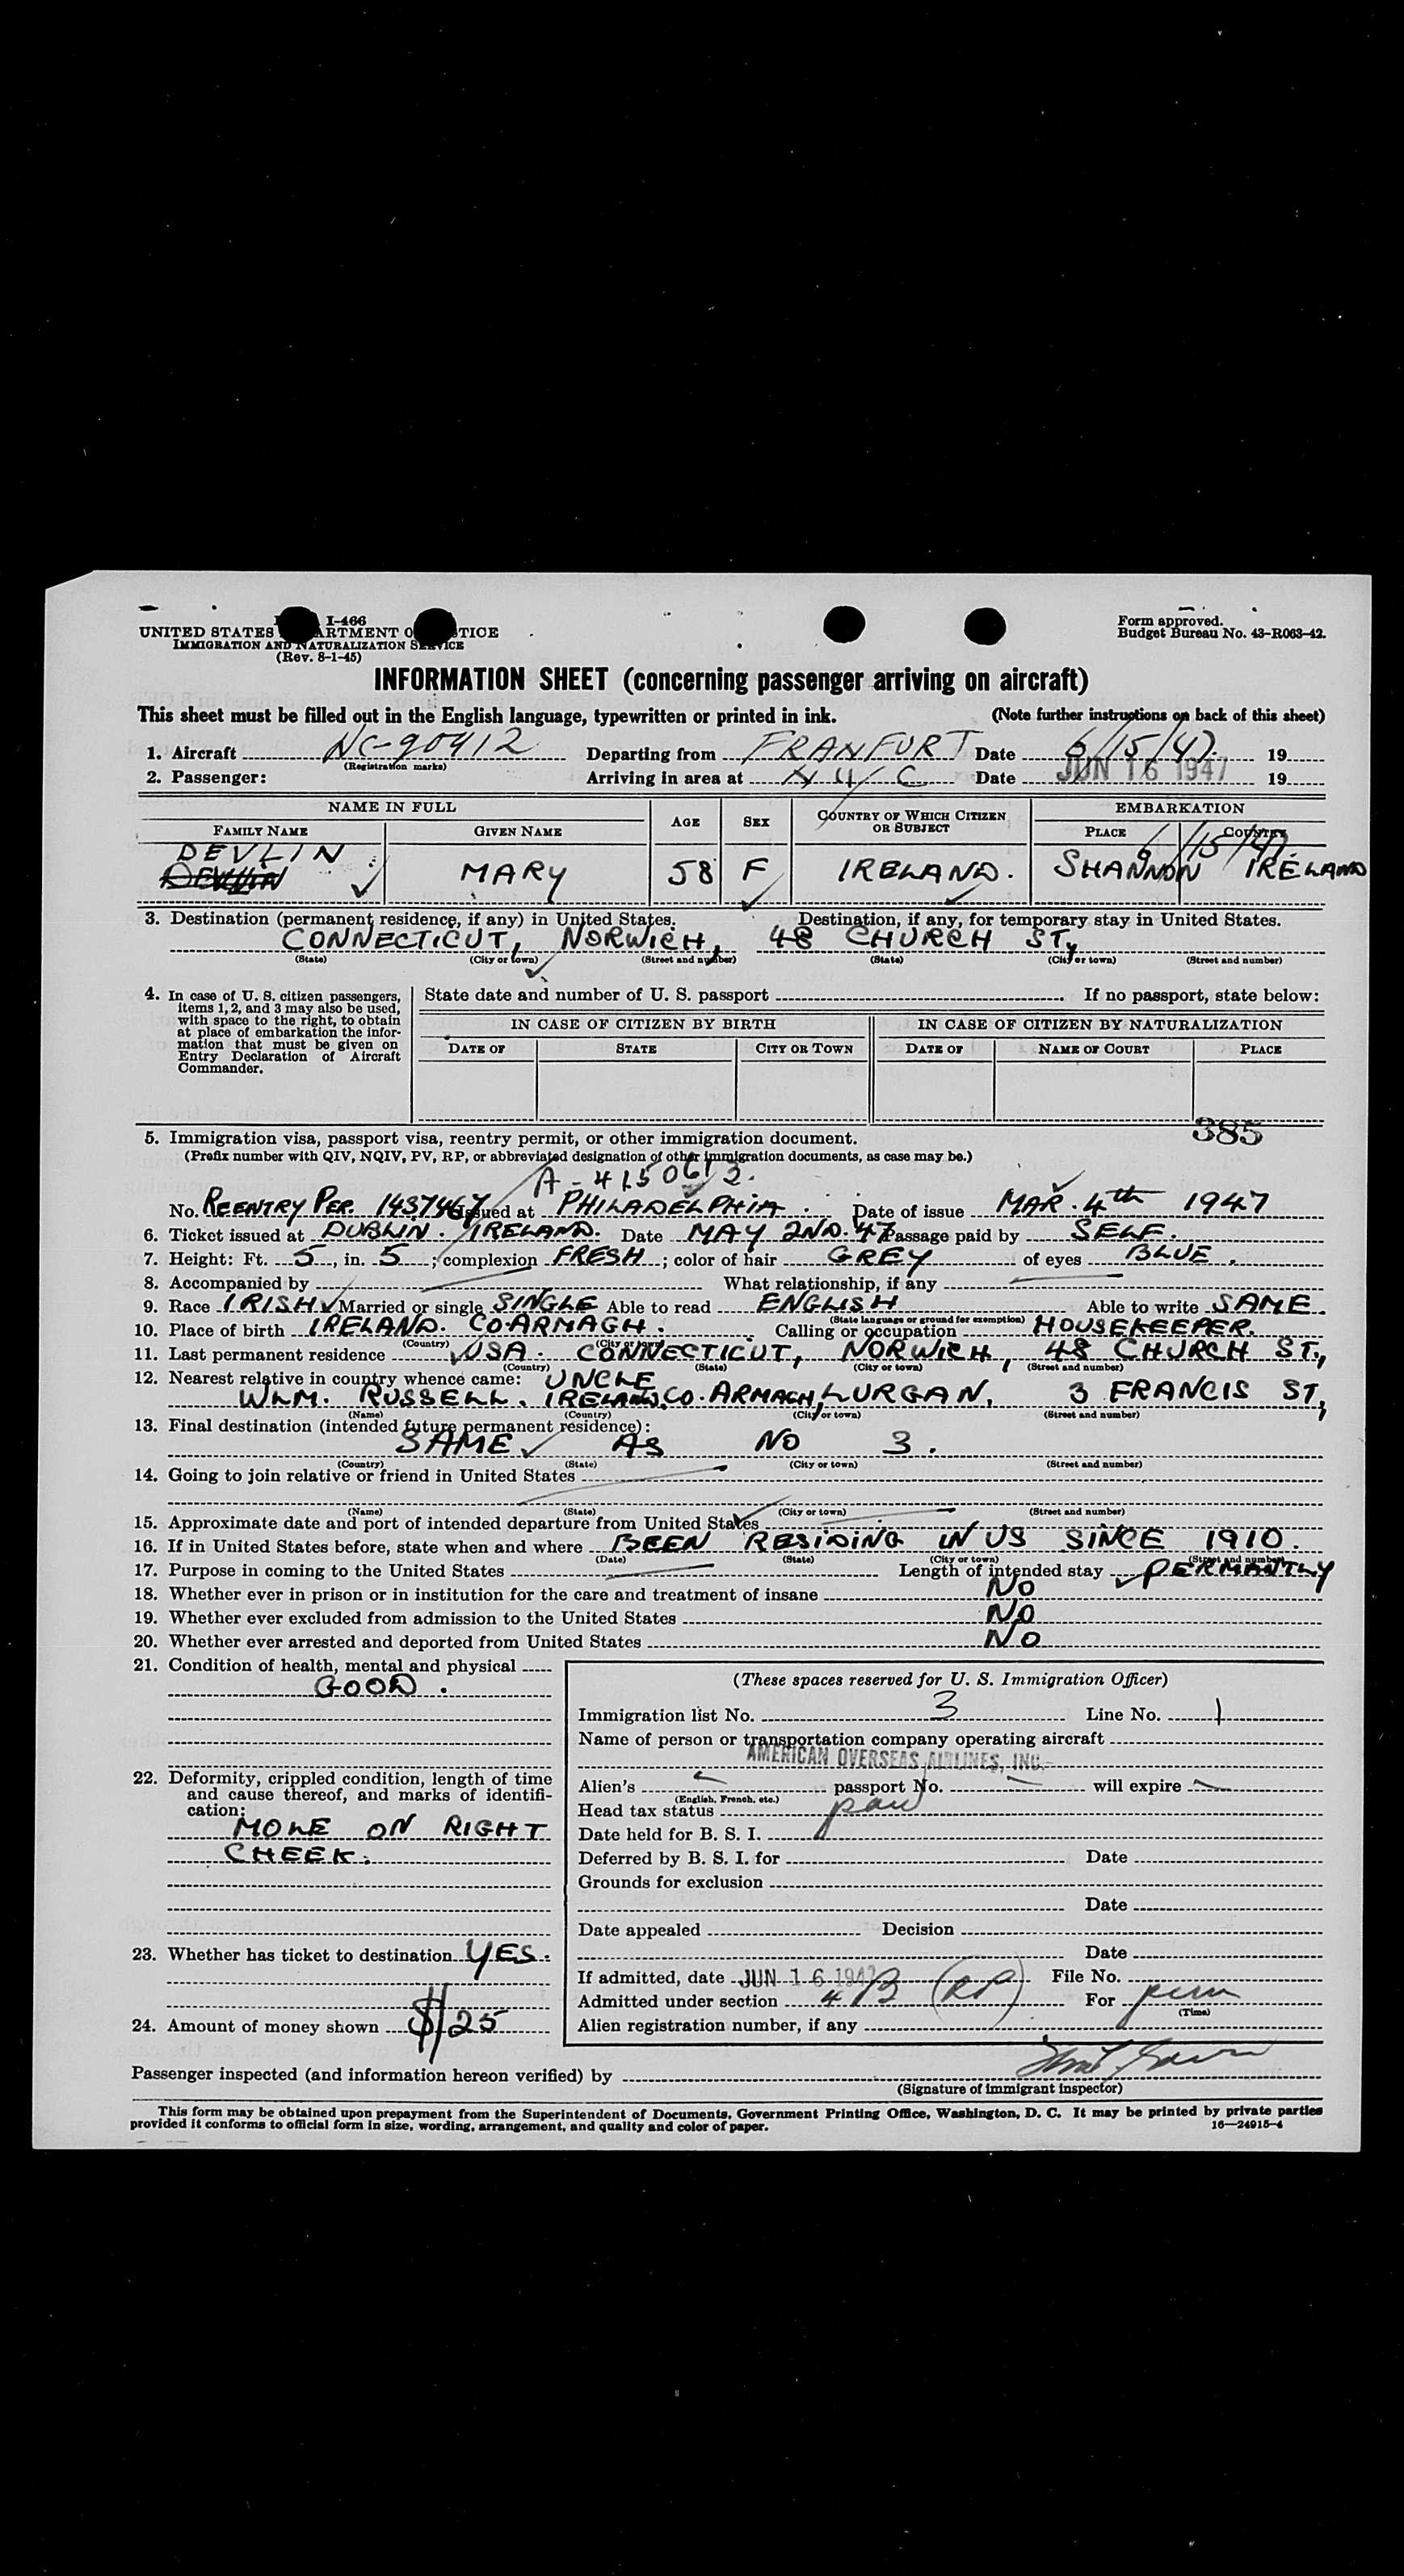 I-466
UNITED STATES DEPARTMENT OF JUSTICE
IMMIGRATION AND NATURALIZATION SERVICE
(Rev. 8-1-45)
Form approved.
Budget Bureau No. 43-R063-42.
INFORMATION SHEET (concerning passenger arriving on aircraft)
This sheet must be filled out in the English language, typewritten or printed in ink. (Note further instructions on back of this sheet)
1. Aircraft NC-90912 Departing from FRANFURT Date 6/15/47 19
(Registration marks)
2. Passenger: Arriving in area at N Y C Date JUN 16 1947 19
NAME IN FULL AGE SEX COUNTRY OF WHICH CITIZEN OR SUBJECT EMBARKATION
FAMILY NAME GIVEN NAME PLACE COUNTRY
6/15/47
DEVLIN MARY 58 F IRELAND. SHANNON IRELAND
3. Destination (permanent residence, if any) in United States. Destination, if any, for temporary stay in United States.
CONNECTICUT, NORWICH, 48 CHURCH ST,
(State) (City or town) (Street and number) (State) (City or town) (Street and number)
4. In case of U. S. citizen passengers, items 1, 2, and 3 may also be used, with space to the right, to obtain at place of embarkation the information that must be given on Entry Declaration of Aircraft Commander.
State date and number of U. S. passport If no passport, state below:
IN CASE OF CITIZEN BY BIRTH IN CASE OF CITIZEN BY NATURALIZATION
DATE OF STATE CITY OR TOWN DATE OF NAME OF COURT PLACE
385
5. Immigration visa, passport visa, reentry permit, or other immigration document.
(Prefix number with QIV, NQIV, PV, RP, or abbreviated designation of other immigration documents, as case may be.)
A-4150613.
No. REENTRY PER. 1437467 Issued at PHILADELPHIA. Date of issue MAR. 4th 1947
6. Ticket issued at DUBLIN. IRELAND. Date MAY 2ND. 47 Passage paid by SELF.
7. Height: Ft. 5, in. 5; complexion FRESH; color of hair GREY of eyes BLUE.
8. Accompanied by What relationship, if any
9. Race IRISH Married or single SINGLE Able to read ENGLISH Able to write SAME
(State language or ground for exemption)
10. Place of birth IRELAND. CO. ARMAGH. Calling or occupation HOUSEKEEPER.
(Country) (City or town)
11. Last permanent residence USA. CONNECTICUT, NORWICH, 48 CHURCH ST.,
(Country) (State) (City or town) (Street and number)
12. Nearest relative in country whence came: UNCLE
WLM. RUSSELL. IRELAND, CO. ARMAGH, LURGAN, 3 FRANCIS ST,
(Name) (Country) (City or town) (Street and number)
13. Final destination (intended future permanent residence):
SAME AS NO 3.
(Country) (State) (City or town) (Street and number)
14. Going to join relative or friend in United States
(Name) (State) (City or town) (Street and number)
15. Approximate date and port of intended departure from United States
16. If in United States before, state when and where BEEN RESIDING IN US SINCE 1910.
(Date) (State) (City or town) (Street and number)
17. Purpose in coming to the United States Length of intended stay PERMANTLY
18. Whether ever in prison or in institution for the care and treatment of insane NO
19. Whether ever excluded from admission to the United States NO
20. Whether ever arrested and deported from United States NO
21. Condition of health, mental and physical
GOOD.
22. Deformity, crippled condition, length of time and cause thereof, and marks of identification:
MOLE ON RIGHT
CHEEK.
23. Whether has ticket to destination YES.
24. Amount of money shown $125
(These spaces reserved for U. S. Immigration Officer)
Immigration list No. 3 Line No. 1
Name of person or transportation company operating aircraft
AMERICAN OVERSEAS AIRLINES, INC.
Alien's passport No. will expire
(English, French, etc.)
Head tax status
Date held for B. S. I.
Deferred by B. S. I. for Date
Grounds for exclusion
Date
Date appealed Decision
Date
If admitted, date JUN 16 1947 File No.
Admitted under section 4 B (RP) For perm
(Time)
Alien registration number, if any
Passenger inspected (and information hereon verified) by
(Signature of immigrant inspector)
This form may be obtained upon prepayment from the Superintendent of Documents, Government Printing Office, Washington, D. C. It may be printed by private parties
provided it conforms to official form in size, wording, arrangement, and quality and color of paper.
16—24915-4